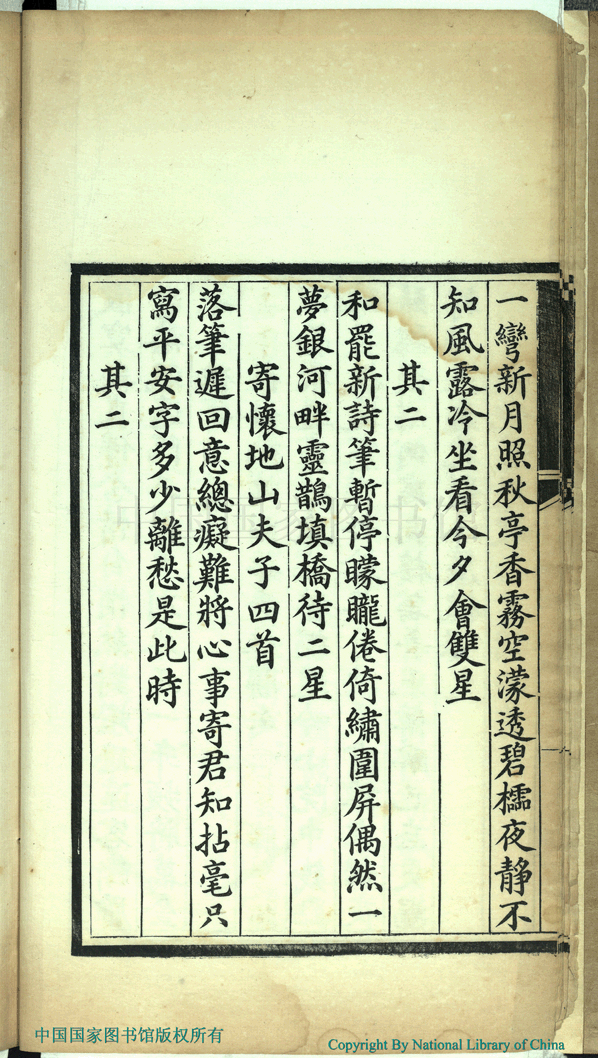 一彎新月照秋亭香霧空濛透碧櫺夜靜不
知風露冷坐看今夕會雙星
其二
和罷新詩筆暫停曚曨倦倚繡圍屏偶然一
夢銀河畔靈鵲填橋待二星
寄懷地山夫子四首
落筆遲回意總癡難將心事寄君知拈毫只
寫平安字多少離愁是此時
其二
中国国家图书馆
中国国家图书馆版权所有
Copyright By National Library of China